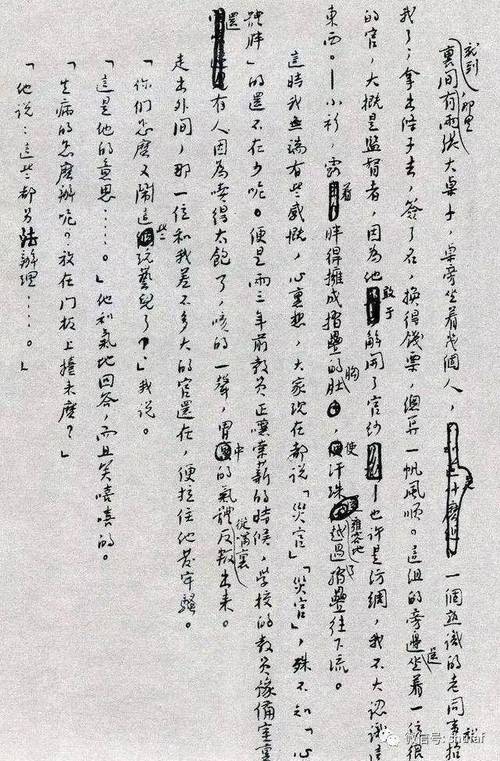 就到那里，裏間有兩張大桌子，桌旁坐着幾個人，一個熟識的老同事就招
我了；拿出條子去，簽了名，換得錢票，總算一帆風順。這組的旁邊還坐着一位很
的官，大概是監督者，因為他敢于解開了官紗——也许是紡綢，我不大認識這
東西。——小衫，露着胖得擁成摺疊的胸肚，使汗珠雍容地越過了摺疊往下流。
這時我無端有些感慨，心裏想，大家現在都說「災官」「災官」，殊不知「心
體胖」的還不在少呢。便是兩三年前教員正嚷索薪的時候，學校的教員豫備室裏
還有人因為喫得太飽了，咳的一聲，胃中的氣體從嘴裏反叛出來。
走出外间，那一位和我差不多大的官還在，便拉住他發牢騷。
「你们怎麽又鬧這些玩藝兒了？」我说。
「這是他的意思……。」他和氣地回答，而且笑嘻嘻的。
「生病的怎麽辦呢？放在门板上擡來麽？」
「他说：這些都另法辦理……。」
微信号: shufaf